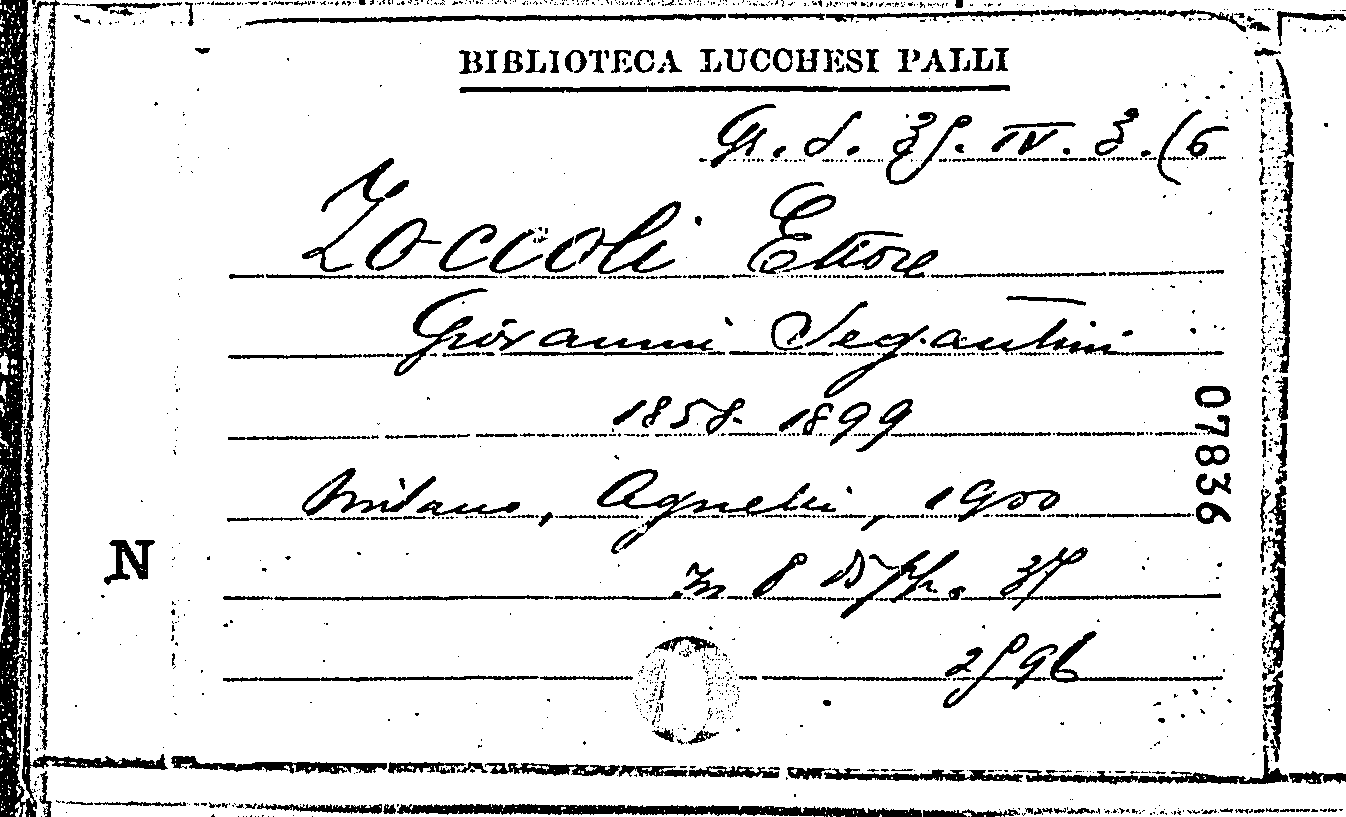 BIBLIOTECA LUCCHESI PALLI
Gr. S. 35. IV. 3. (6
Zoccoli Ettore
Giovanni Segantini
1858-1899
07836
Milano, Agnelli, 1900
N
In 8 pp. 37
2596